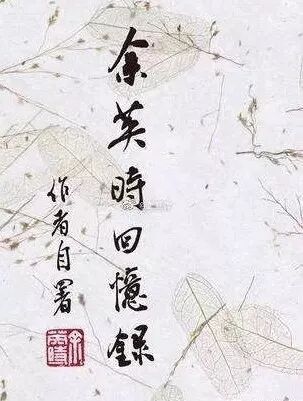 余英時回憶録
作者自署